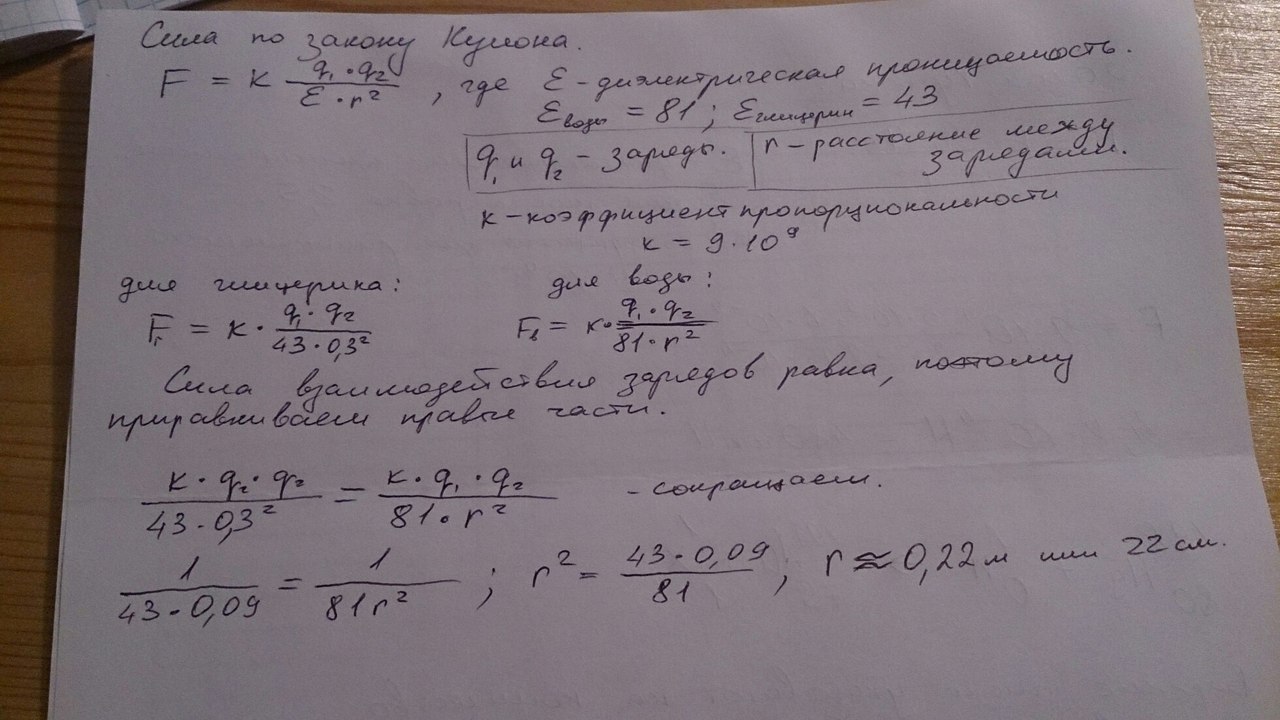 Сила по закону Кулона.
F = k q₁·q₂ / ε·r² , где ε - диэлектрическая проницаемость.
ε воды = 81 ; ε глицерин = 43
q₁ и q₂ - заряды. r - расстояние между зарядами.
k - коэффициент пропорциональности
k = 9·10⁹
для глицерина: для воды:
Fг = k · q₁·q₂ / 43·0,3² Fв = k · q₁·q₂ / 81·r²
Сила взаимодействия зарядов равна, поэтому
приравниваем правые части.
k·q₂·q₂ / 43·0,3² = k·q₁·q₂ / 81·r² - сокращаем.
1 / 43·0,09 = 1 / 81r² ; r² = 43·0,09 / 81 ; r ≈ 0,22 м или 22 см.